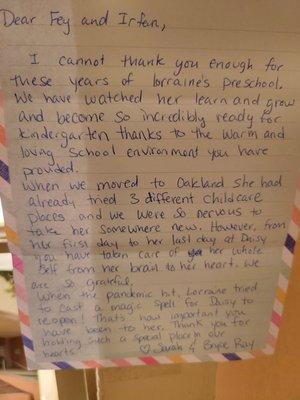 Dear Fey and Irfan,
I cannot thank you enough for
these years of Lorraine's preschool.
We have watched her learn and grow
and become so incredibly ready for
kindergarten thanks to the warm and
loving school environment you have
provided.
When we moved to Oakland she had
already tried 3 different childcare
places and we were so nervous to
take her somewhere new. However, from
her first day to her last day at Daisy
you have taken care of her whole
self from her brain to her heart. We
are so grateful.
When the pandemic hit, Lorraine tried
to cast a magic spell for Daisy to
reopen! Thats how important you
have been to her. Thank you for
holding such a special place in our
hearts.
♡ Sarah & Ray